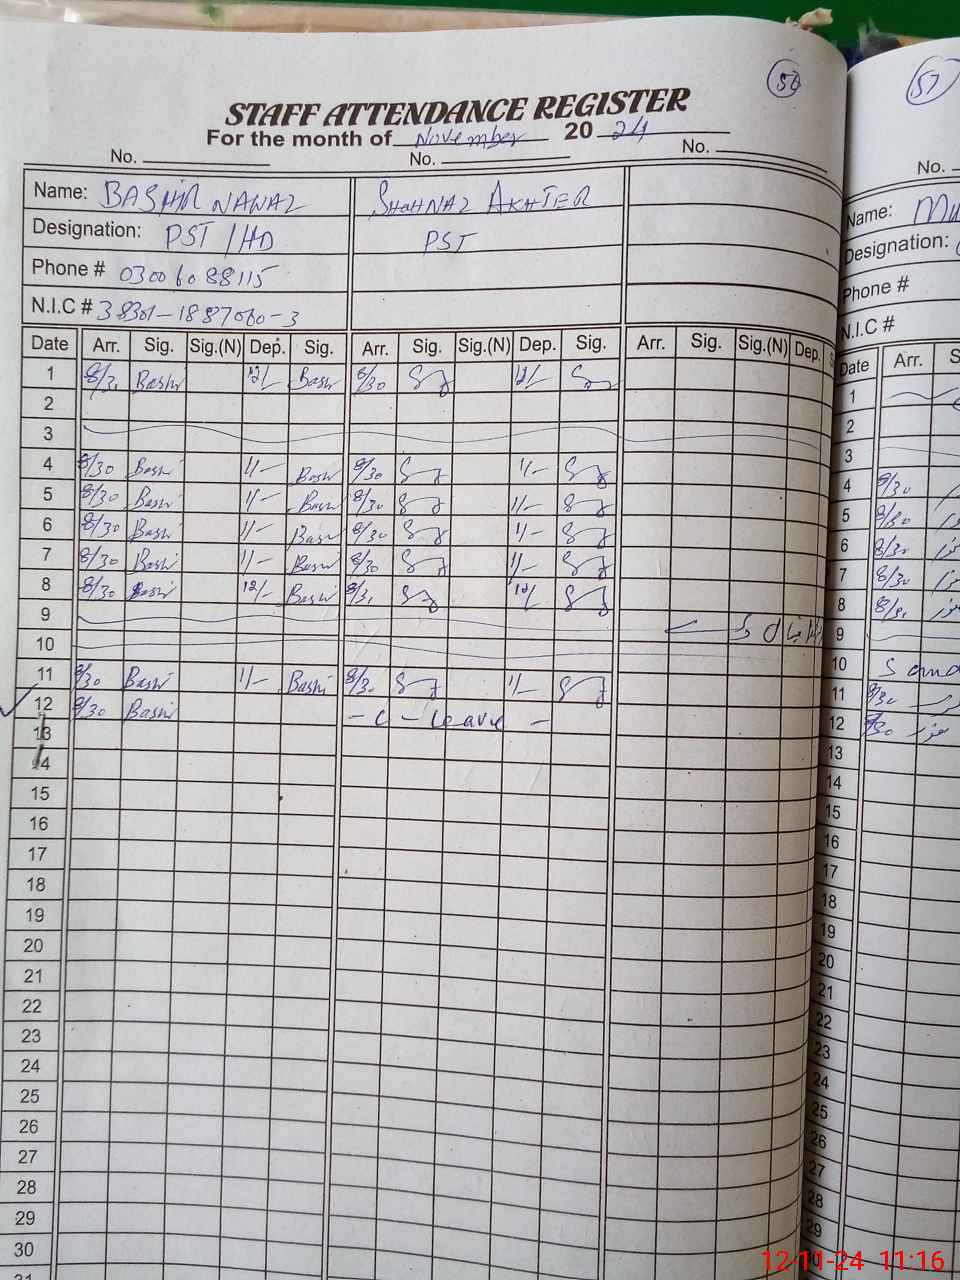 56
57
STAFF ATTENDANCE REGISTER
For the month of November 20 24
No. No. No.
Name: BASHIR NAWAZ SHAHNAZ AKHTER
Designation: PST / HD PST
Phone # 03006088115
N.I.C #
Date Arr. Sig. Sig.(N) Dep. Sig. Arr. Sig. Sig.(N) Dep. Sig. Arr. Sig. Sig.(N) Dep.
1 8/30 Bashi 12/- Bashi 8/30 12/-
2
3
4 8/30 Bashi 1/- Bashi 8/30 1/-
5 8/30 Bashi 1/- Bashi 8/30 1/-
6 8/30 Bashi 1/- Bashi 8/30 1/-
7 8/30 Bashi 1/- Bashi 8/30 1/-
8 8/30 Bashi 12/- Bashi 8/30 12/-
9
10
11 8/30 Bashi 1/- Bashi 8/30 1/-
12 8/30 Bashi - C - leave -
13
14
15
16
17
18
19
20
21
22
23
24
25
26
27
28
29
30
31
No.
Name:
Designation:
Phone #
N.I.C #
Date Arr.
1
2
3
4 8/30
5 8/30
6 8/30
7 8/30
8 8/30
9
10
11 8/30
12 8/30
13
14
15
16
17
18
19
20
21
22
23
24
25
26
27
28
29
12-11-24 11:16